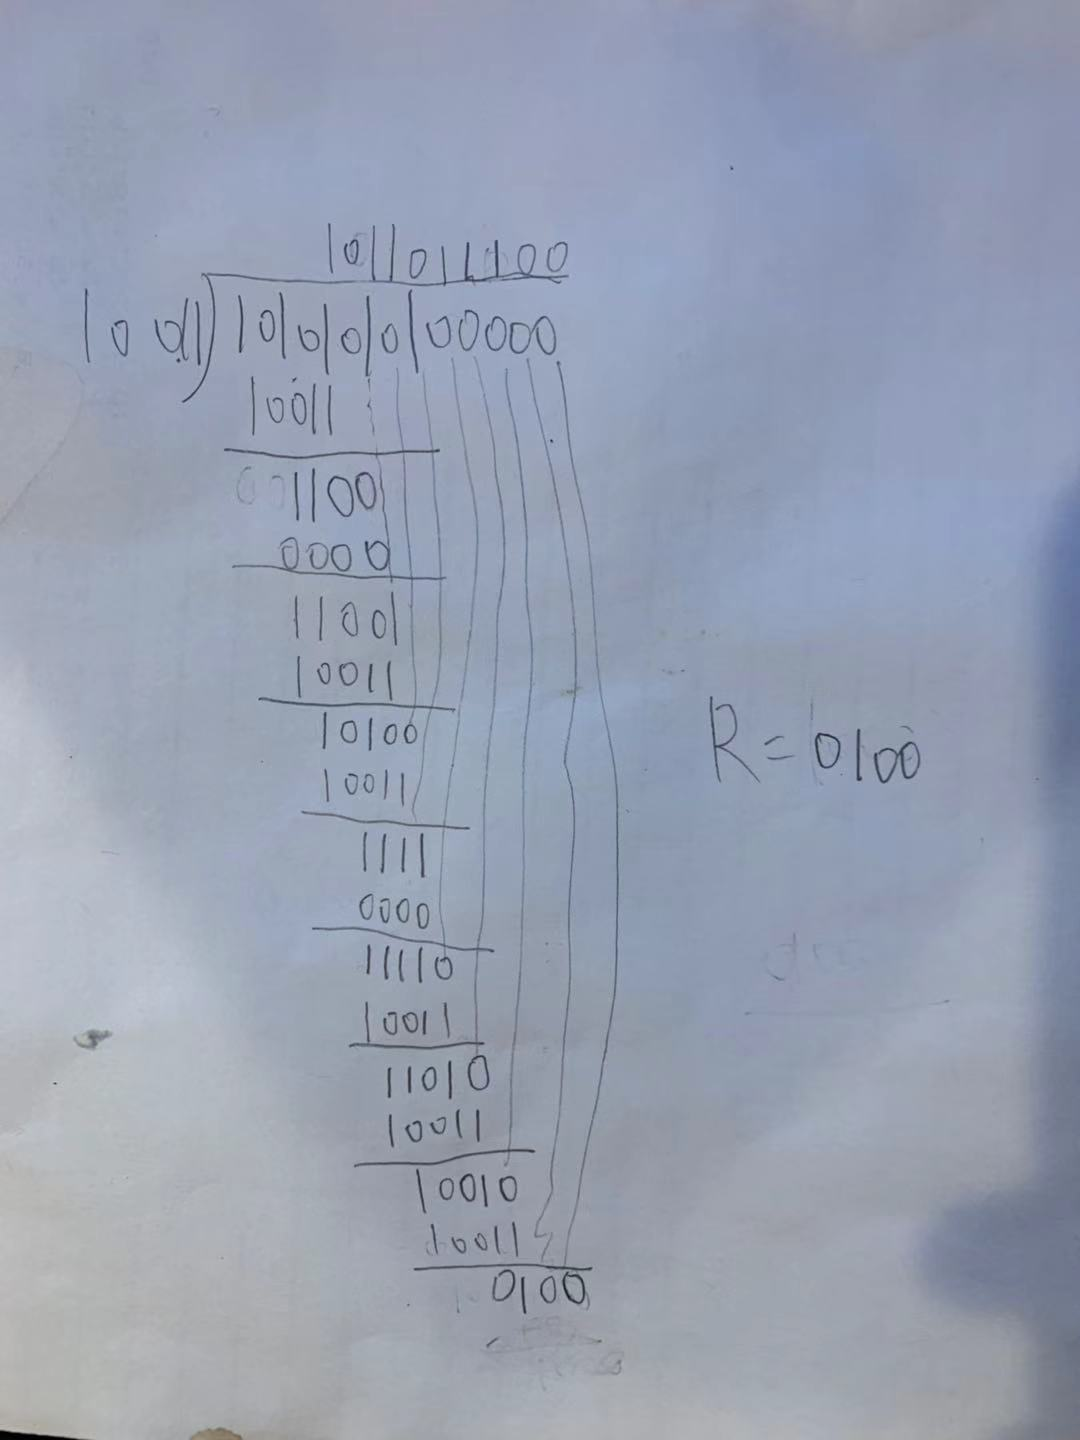 1011011100
10011)10101010100000
10011
001100
0000
11001
10011
10100
R=0100
10011
1111
0000
11110
10011
11010
10011
10010
10011
0100